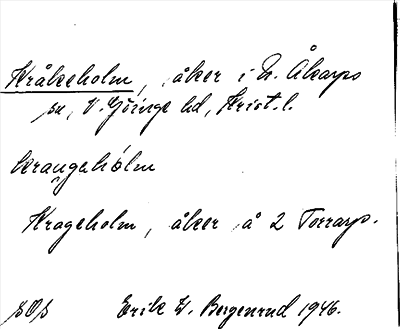 Kråkeholm, åker i N. Åkarps
sn, V. Göinge hd, Krist. l.
kraŋgahólm
Krageholm, åker å 2 Torarp.
SOS Erik W. Bergenrud 1946.